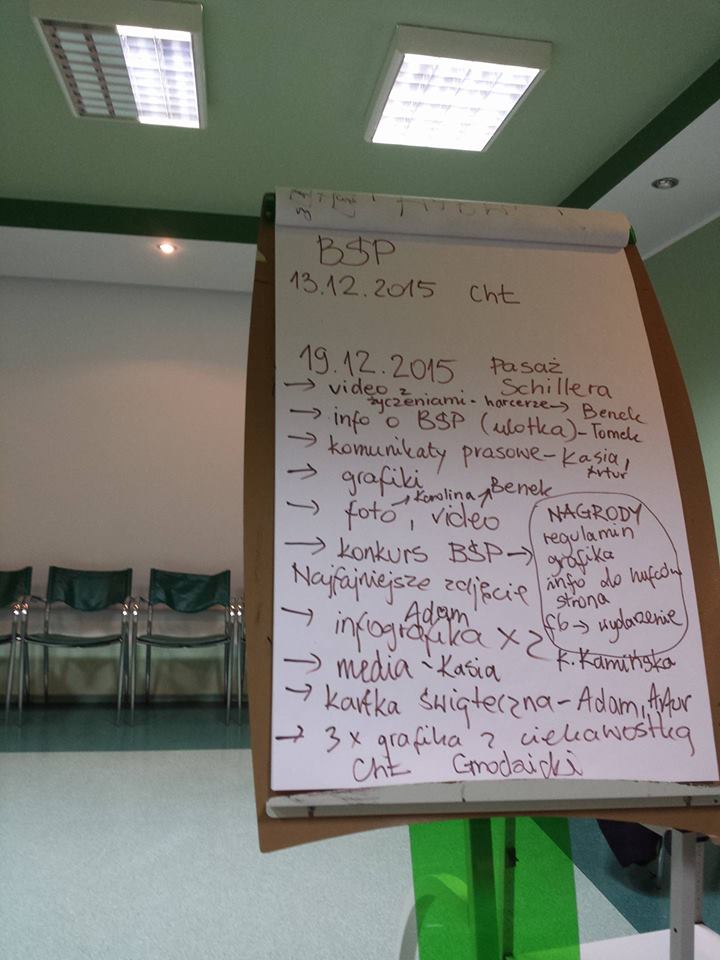 BŚP
13.12.2015 Cht
19.12.2015 Pasaż
Schillera
→ video z
życzeniami - harcerze → Benek
→ info o BŚP (ulotka) - Tomek
→ komunikaty prasowe - Kasia,
Artur
→ grafiki
Karolina Benek
→ foto, video
→ konkurs BŚP →
Najfajniejsze zdjęcie
NAGRODY
regulamin
grafika
info do hufców
strona
fb → wydarzenie
K. Kamińska
Adam
→ infografika x 2
→ media - Kasia
→ kartka świąteczna - Adam, Artur
→ 3 x grafika z ciekawostką
Cht Grodzicki